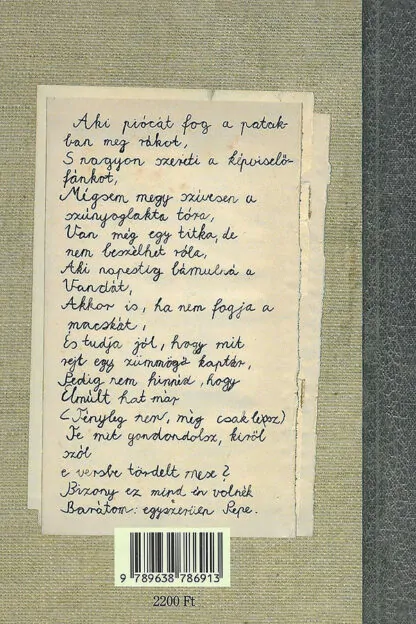 Aki piócát fog a patak-
ban meg rákot,
S nagyon szereti a képviselő-
fánkot,
Mégsem megy szívesen a
szúnyoglakta tóra,
Van még egy titka, de
nem beszélhet róla,
Aki napestig bámulná a
Vandát,
Akkor is, ha nem fogja a
macskát,
És tudja jól, hogy mit
rejt egy zümmögő kaptár,
Pedig nem hinnéd, hogy
Elmúlt hat már
(Tényleg nem, még csak lepsz)
Te mit gondondolsz, kiről
szól
e versbe tördelt mese?
Bizony ez mind én volnék
Barátom: egyszerűen Pepe.
9 789638 786913
2200 Ft